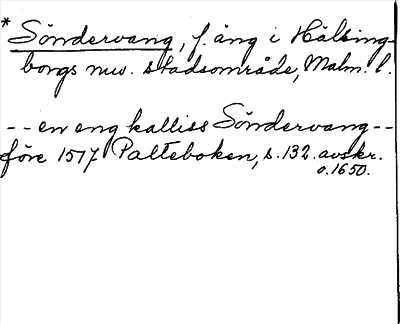 * Söndervang, f. äng i Hälsing-
borgs nuv. stadsområde, Malm. l.
-- en eng kalliss Söndervang --
före 1577 Palteboken, s. 132. avskr.
o. 1650.